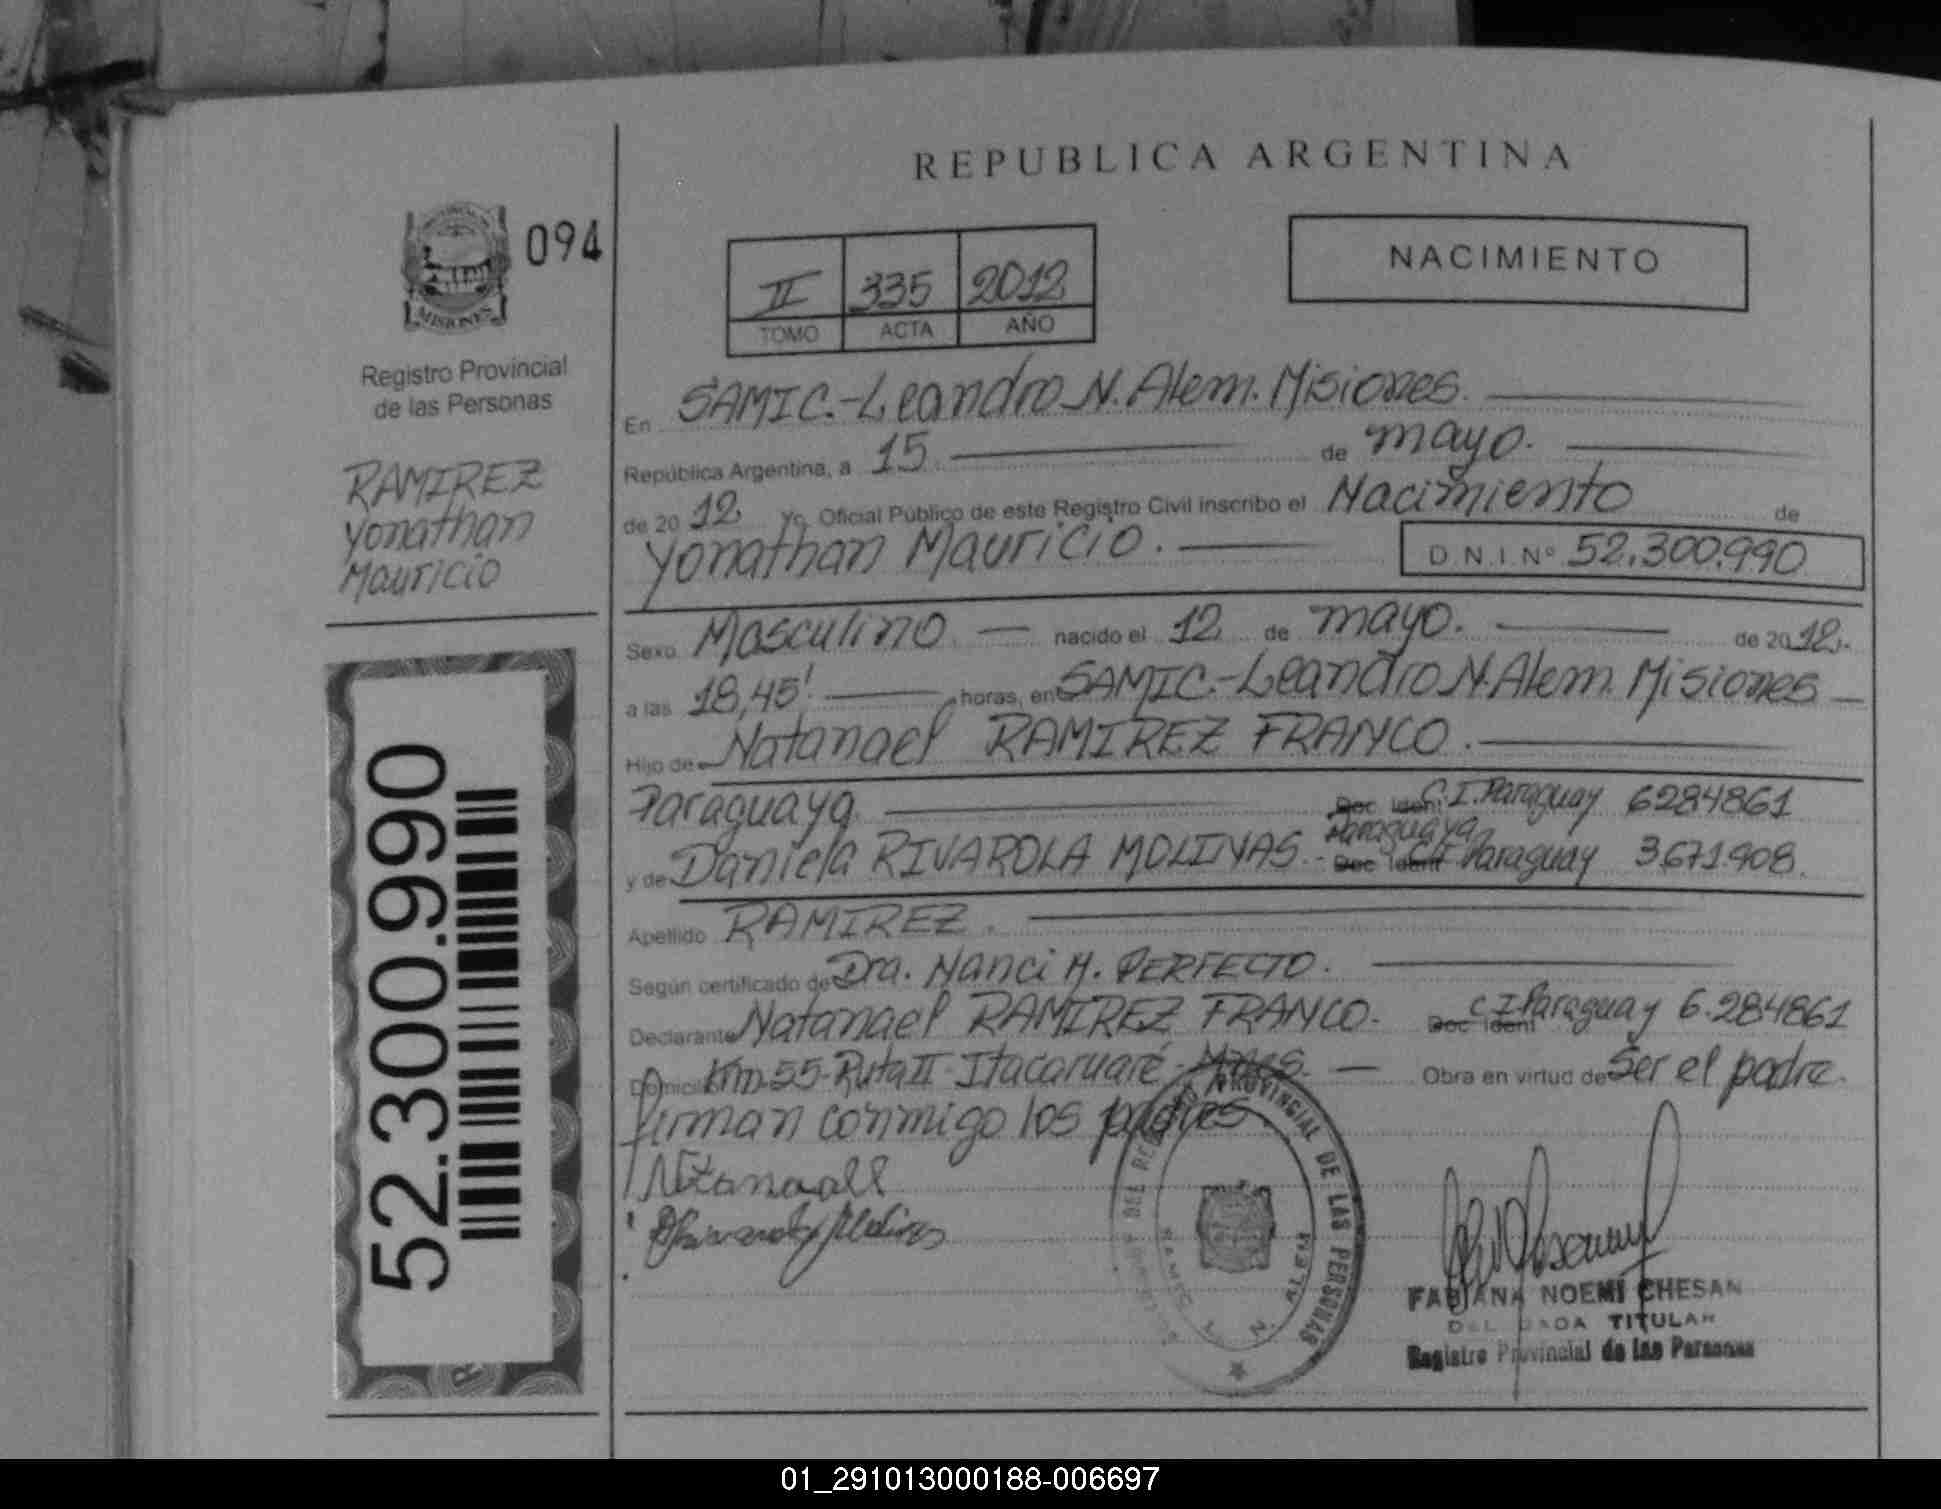 REPUBLICA ARGENTINA
094
MISIONES
Registro Provincial
de las Personas
RAMIREZ
Yonathan
Mauricio
52.300.990
II 335 2012
TOMO ACTA AÑO
NACIMIENTO
En SAMIC.-Leandro N. Alem. Misiones.
República Argentina, a 15 de mayo.
de 20 12. Yo Oficial Público de este Registro Civil inscribo el Nacimiento de
Yonathan Mauricio. D.N.I. Nº 52.300.990
Sexo Masculino nacido el 12 de mayo. de 20 12.
a las 18,45' horas, en SAMIC.-Leandro N. Alem. Misiones
Hijo de Natanael RAMIREZ FRANCO.
Paraguaya Doc Ident C.I. Paraguay 6284861
Paraguaya
y de Daniela RIVAROLA MOLINAS.- Doc Ident C.I. Paraguay 3.671.908.
Apellido RAMIREZ.
Según certificado de Dra. Nanci H. PERFECTO.
Declarante Natanael RAMIREZ FRANCO. Doc Ident C.I Paraguay 6.284861
Domicilio Km.55-Ruta II-Itacaruaré-Mnes. Obra en virtud de Ser el padre.
firman conmigo los padres.
PROVINCIAL DE LAS PERSONAS
N. ALEM
FABIANA NOEMÍ CHESAN
TITULAR
Registro Provincial de las Personas
01_291013000188-006697